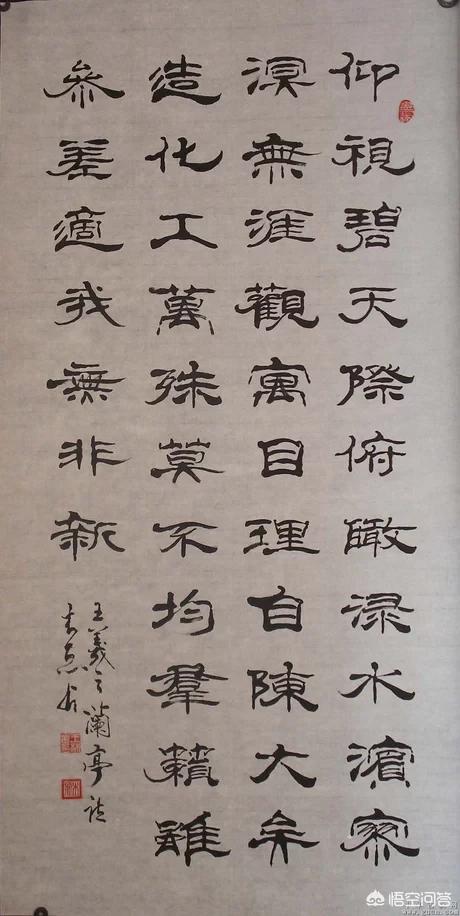 仰視碧天際俯瞰渌水濱寥
溟無涯觀寓目理自陳大矣
造化工萬殊莫不均羣籟雖
參差適我無非新
王羲之蘭亭詩
悟空问答